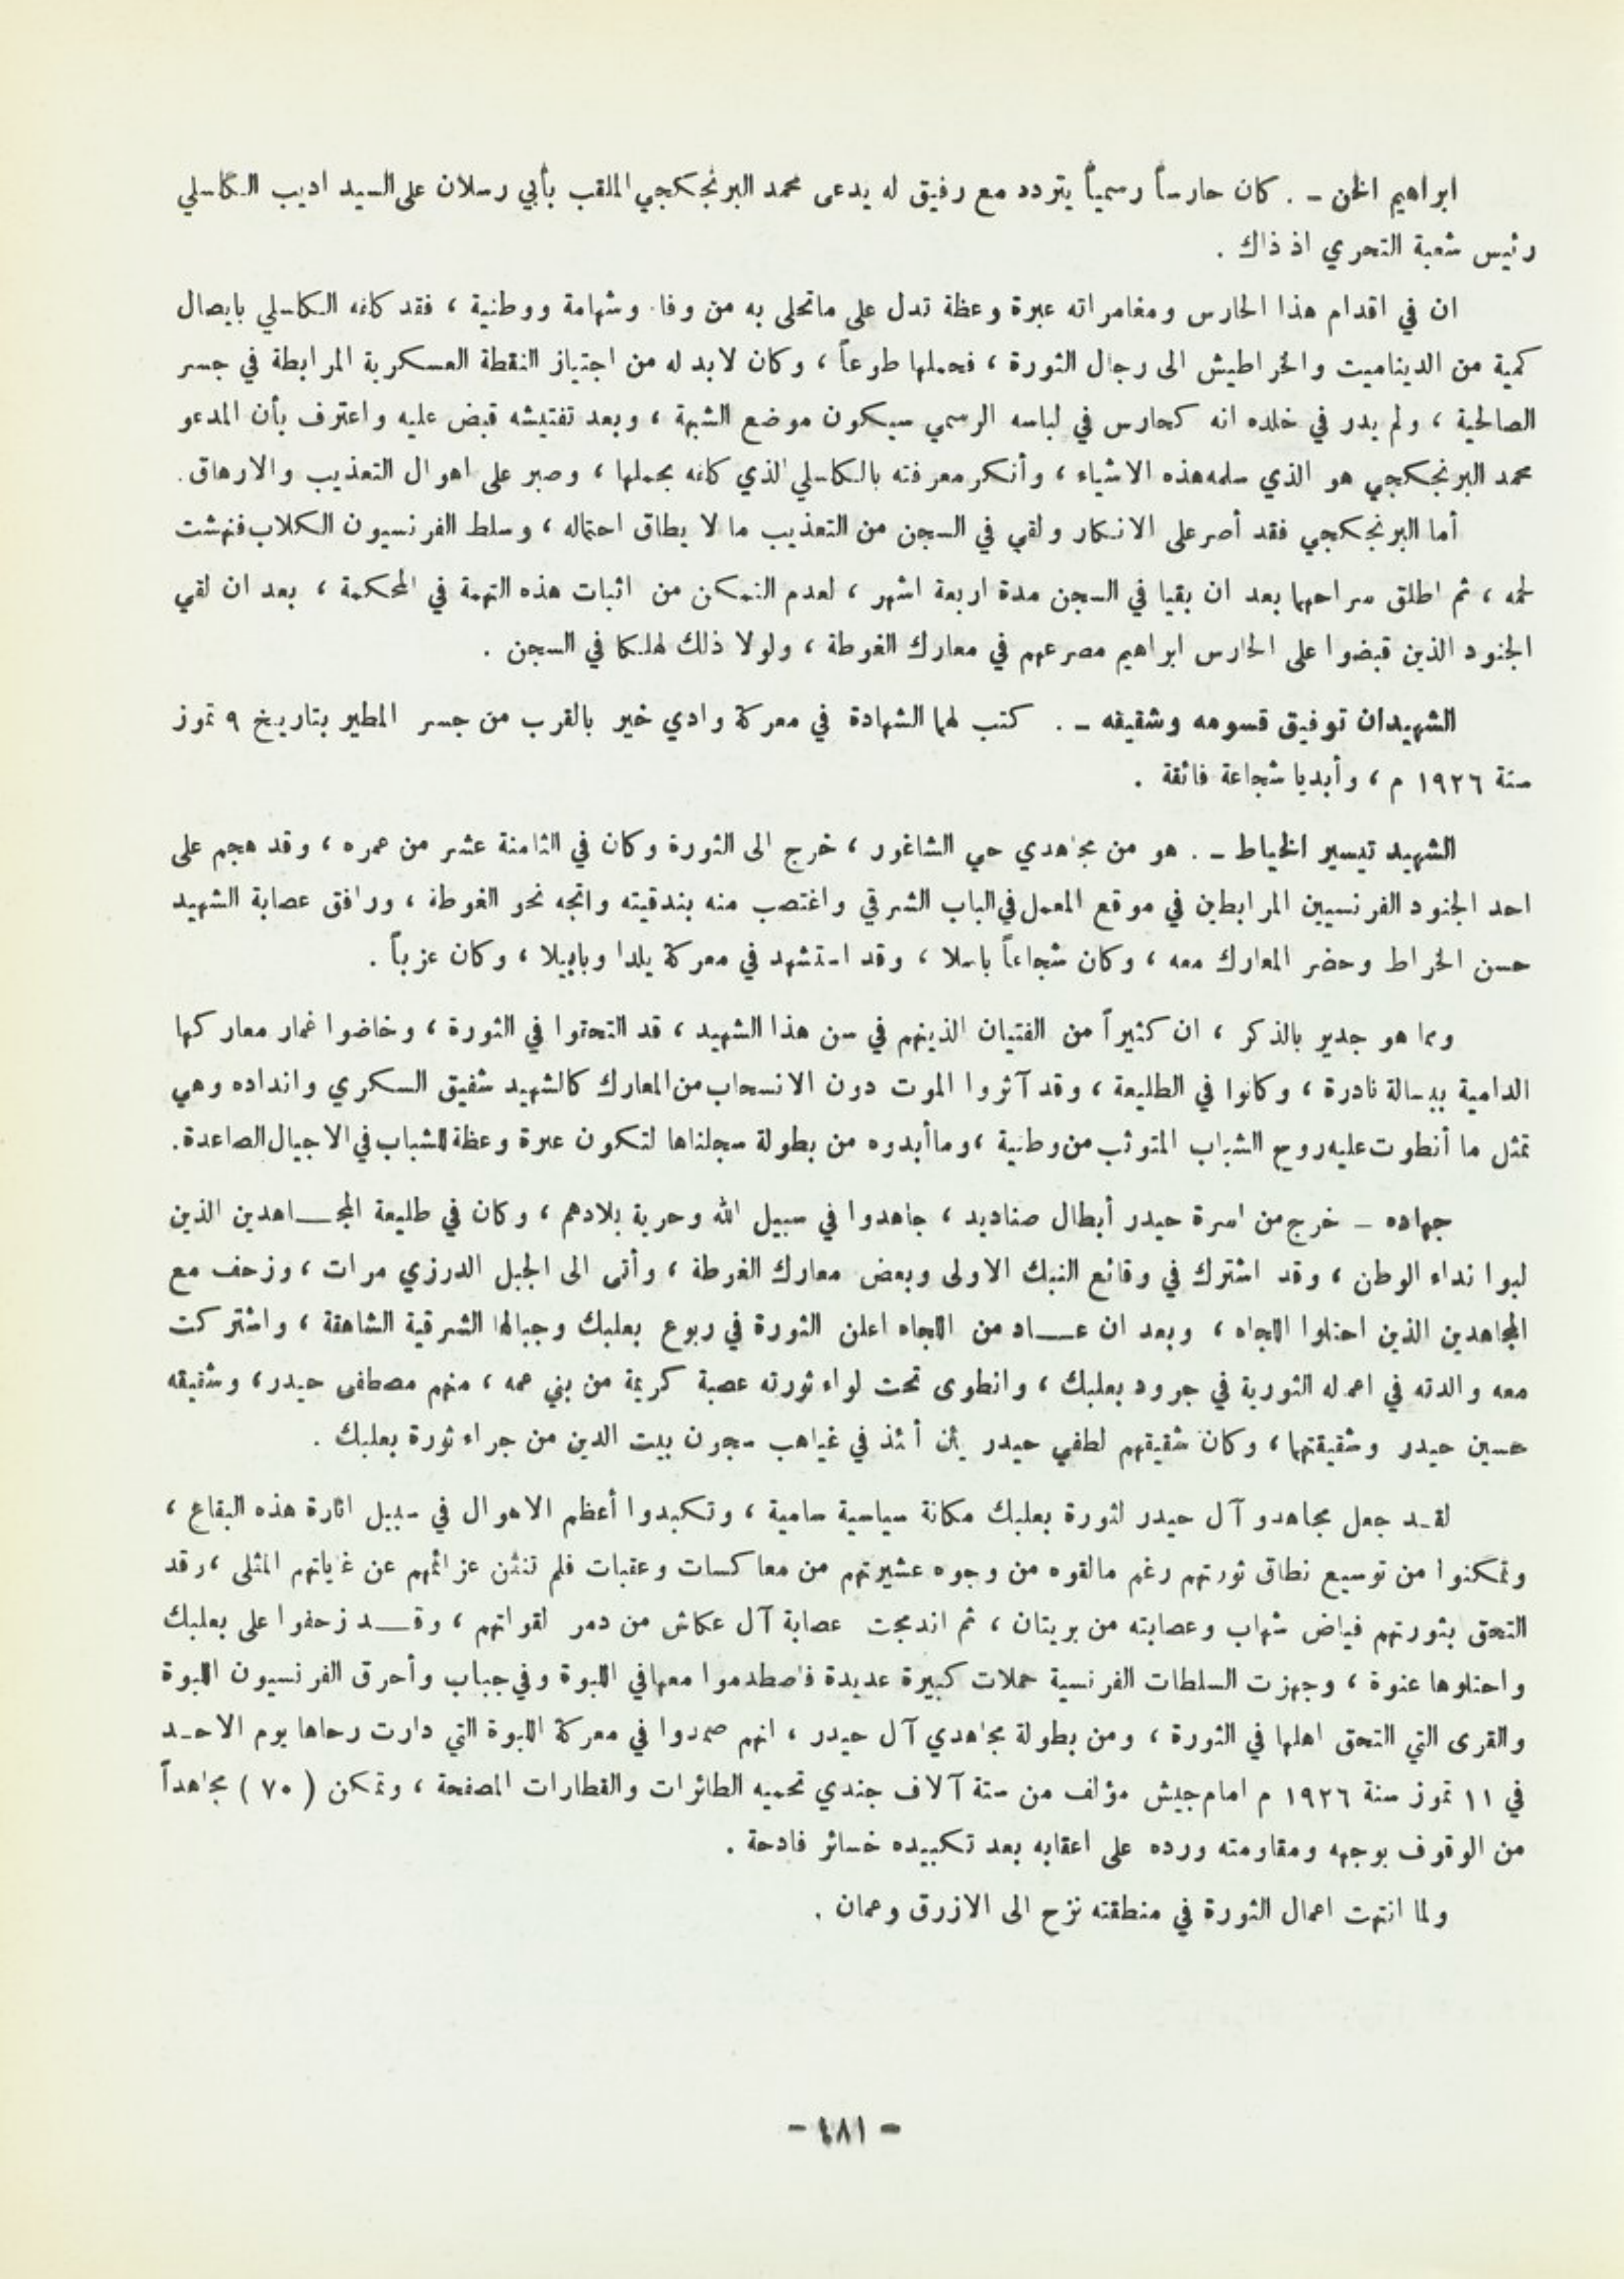 ابراهيم الخن ـ . كان حارساً رسمياً يتردد مع رفيق له يدعى محمد البرنجكجي الملقب بأبي رسلان على السيد اديب الكاسلي
رئيس شعبة التحري اذ ذاك .
ان في اقدام هذا الحارس ومغامراته عبرة وعظة تدل على ماتحلى به من وفاء وشهامة ووطنية ، فقد كلفه الكاسلي بايصال
كمية من الديناميت والخراطيش الى رجال الثورة ، فحملها طوعاً ، وكان لابد له من اجتياز النقطة العسكرية المرابطة في جسر
الصالحية ، ولم يدر في خلده انه كحارس في لباسه الرسمي سيكون موضع الشبهة ، وبعد تفتيشه قبض عليه واعترف بأن المدعو
محمد البرنجكجي هو الذي سلمه هذه الاشياء ، وأنكر معرفته بالكاسلي الذي كلفه بحملها ، وصبر على اهوال التعذيب والارهاق .
أما البرنجكجي فقد أصر على الانكار ولقي في السجن من التعذيب ما لا يطاق احتماله ، وسلط الفرنسيون الكلاب فنهشت
لحمه ، ثم اطلق سراحهما بعد ان بقيا في السجن مدة اربعة اشهر ، لعدم التمكن من اثبات هذه التهمة في المحكمة ، بعد ان لقي
الجنود الذين قبضوا على الحارس ابراهيم مصرعهم في معارك الغوطة ، ولولا ذلك لهلكا في السجن .
الشهيدان توفيق قسومه وشقيقه ـ . كتب لهما الشهادة في معركة وادي خير بالقرب من جسر المطير بتاريخ ٩ تموز
سنة ١٩٢٦ م ، وأبديا شجاعة فائقة .
الشهيد تيسير الخياط ـ . هو من مجاهدي حي الشاغور ، خرج الى الثورة وكان في الثامنة عشر من عمره ، وقد هجم على
احد الجنود الفرنسيين المرابطين في موقع المعمل في الباب الشرقي واغتصب منه بندقيته واتجه نحو الغوطة ، ورافق عصابة الشهيد
حسن الخراط وحضر المعارك معه ، وكان شجاعاً باسلا ، وقد استشهد في معركة يلدا وبابيلا ، وكان عزباً .
ومما هو جدير بالذكر ، ان كثيراً من الفتيان الذينهم في سن هذا الشهيد ، قد التحقوا في الثورة ، وخاضوا غمار معاركها
الدامية ببسالة نادرة ، وكانوا في الطليعة ، وقد آثروا الموت دون الانسحاب من المعارك كالشهيد شفيق السكري وانداده وهي
تمثل ما أنطوت عليه روح الشباب المتوثب من وطنية ، وما أبدوه من بطولة سجلناها لتكون عبرة وعظة للشباب في الاجيال الصاعدة .
جهاده ـ خرج من اسرة حيدر أبطال صناديد ، جاهدوا في سبيل الله وحرية بلادهم ، وكان في طليعة المجـــاهدين الذين
لبوا نداء الوطن ، وقد اشترك في وقائع النبك الاولى وبعض معارك الغوطة ، وأتى الى الجبل الدرزي مرات ، وزحف مع
المجاهدين الذين احتلوا اللجاه ، وبعد ان عـــاد من اللجاه اعلن الثورة في ربوع بعلبك وجبالها الشرقية الشاهقة ، واشتركت
معه والدته في اعماله الثورية في جرود بعلبك ، وانطوى تحت لواء ثورته عصبة كريمة من بني عمه ، منهم مصطفى حيدر ، وشقيقه
حسين حيدر وشقيقتهما ، وكان شقيقهم لطفي حيدر يئن أئذ في غياهب سجون بيت الدين من جراء ثورة بعلبك .
لقـد جعل مجاهدو آل حيدر لثورة بعلبك مكانة سياسية سامية ، وتكبدوا أعظم الاهوال في سبيل اثارة هذه البقاع ،
وتمكنوا من توسيع نطاق ثورتهم رغم مالقوه من وجوه عشيرتهم من معاكسات وعقبات فلم تنثن عزائمهم عن غاياتهم المثلى ، وقد
التحق بثورتهم فياض شهاب وعصابته من بريتان ، ثم اندمجت عصابة آل عكاش من دمر لقواتهم ، وقـــد زحفوا على بعلبك
واحتلوها عنوة ، وجهزت السلطات الفرنسية حملات كبيرة عديدة فاصطدموا معها في اللبوة وفي جباب وأحرق الفرنسيون اللبوة
والقرى التي التحق اهلها في الثورة ، ومن بطولة مجاهدي آل حيدر ، انهم صمدوا في معركة اللبوة التي دارت رحاها يوم الاحـد
في ١١ تموز سنة ١٩٢٦ م امام جيش مؤلف من ستة آلاف جندي تحميه الطائرات والقطارات المصفحة ، وتمكن ( ٧٠ ) مجاهداً
من الوقوف بوجهه ومقاومته ورده على اعقابه بعد تكبيده خسائر فادحة .
ولما انتهت اعمال الثورة في منطقته نزح الى الازرق وعمان .
- ٤٨١ -